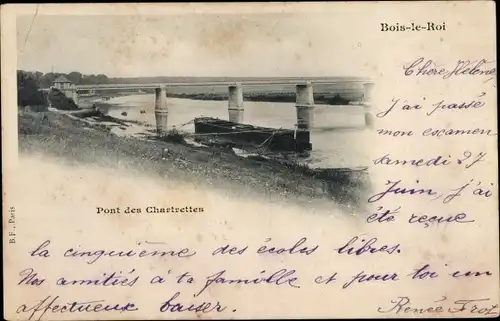 Bois-le-Roi
Chère Hélène
J'ai passé
mon escamen
samedi 27
Juin, j'ai
été reçue
Pont des Chartrettes
B. F., Paris
la cinquième des écoles libres.
Nos amitiés à ta famille et pour toi un
affectueux baiser.
Renée